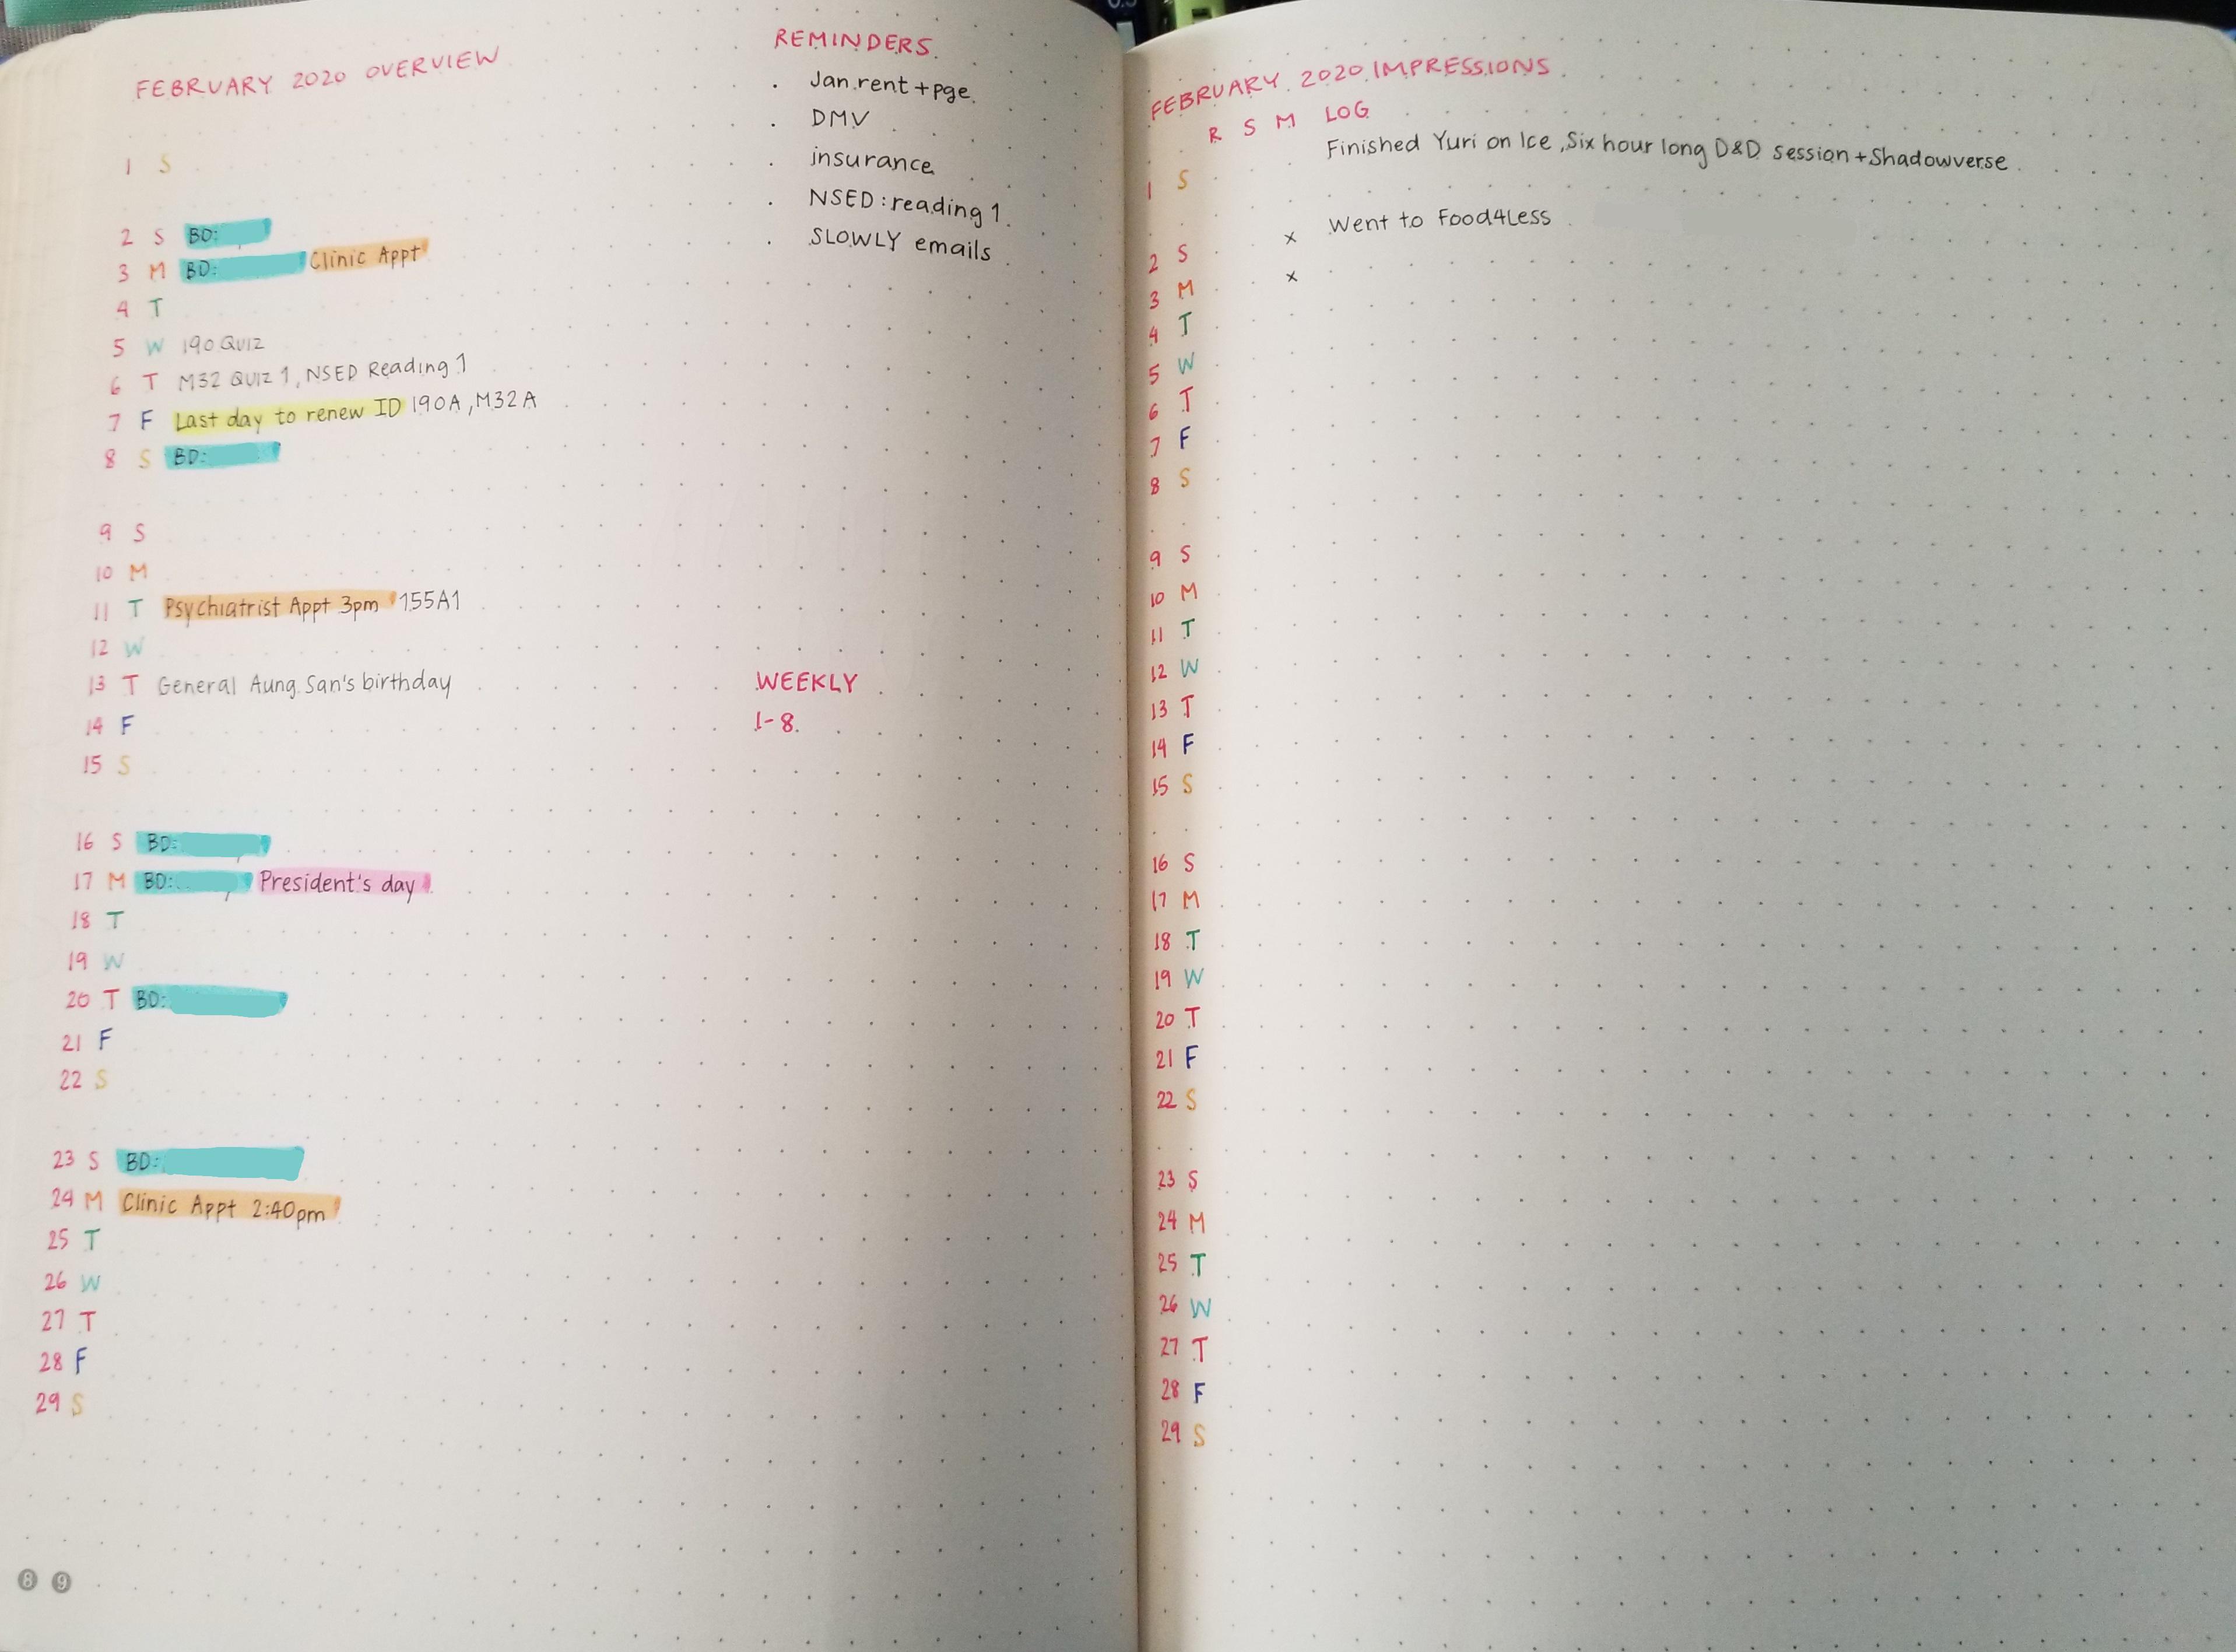 FEBRUARY 2020 OVERVIEW
1 S
2 S BD:
3 M BD: Clinic Appt
4 T
5 W 190 QUIZ
6 T M32 QUIZ 1, NSED Reading 1
7 F Last day to renew ID 190A, M32A
8 S BD:
9 S
10 M
11 T Psychiatrist Appt 3pm 155A1
12 W
13 T General Aung San's birthday
14 F
15 S
16 S BD:
17 M BD: President's day
18 T
19 W
20 T BD:
21 F
22 S
23 S BD:
24 M Clinic Appt 2:40pm
25 T
26 W
27 T
28 F
29 S
REMINDERS
. Jan rent + pge
. DMV
. insurance
. NSED: reading 1
. SLOWLY emails
WEEKLY
1-8
89
FEBRUARY 2020 IMPRESSIONS
R S M LOG
1 S Finished Yuri on Ice, Six hour long D&D session + Shadowverse
2 S x Went to Food4Less
3 M x
4 T
5 W
6 T
7 F
8 S
9 S
10 M
11 T
12 W
13 T
14 F
15 S
16 S
17 M
18 T
19 W
20 T
21 F
22 S
23 S
24 M
25 T
26 W
27 T
28 F
29 S